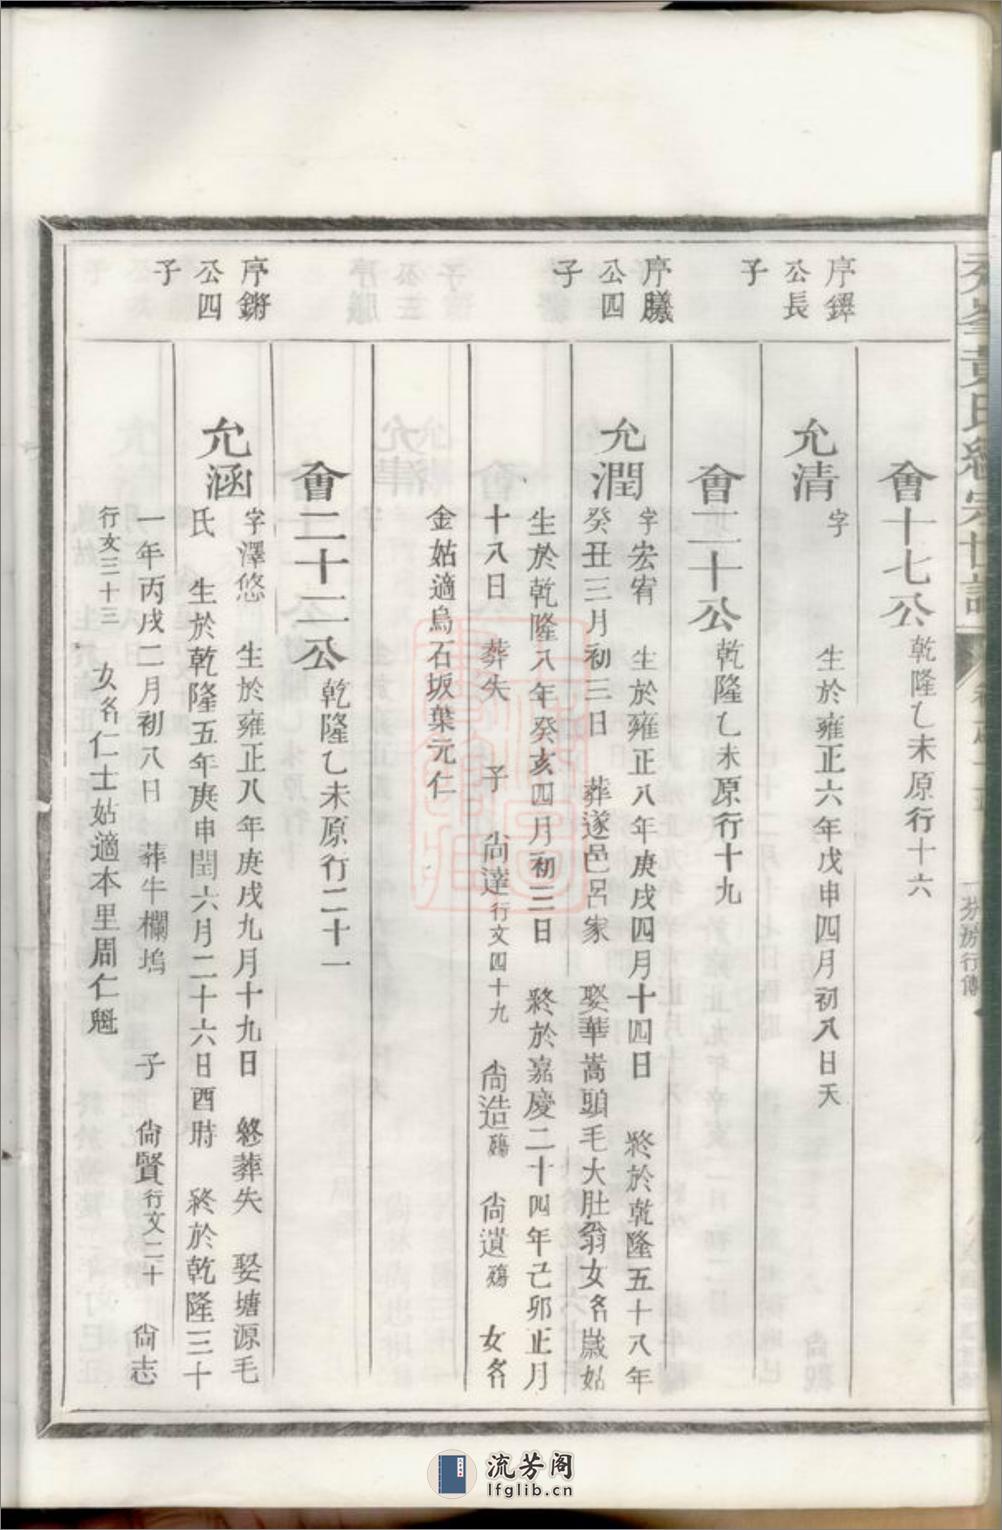 黃氏總宗世譜
芬房行傳
會十七公 乾隆乙未原行十六
序鐸
公長
子
允清 字 生於雍正六年戊申四月初八日夭
會二十公 乾隆乙未原行十九
序臙
公四
子
允潤 字宏宥 生於雍正八年庚戌四月十四日 終於乾隆五十八年
癸丑三月初三日 葬遂邑呂家 娶華嵩頭毛大肚翁女名嵗姑
生於乾隆八年癸亥四月初三日 終於嘉慶二十四年己卯正月
十八日 葬失 子 尙達行文四十九 尙造殤 尙遺殤 女名
金姑適烏石坂葉元仁
會二十二公 乾隆乙未原行二十一
序鏘
公四
子
允涵 字澤悠 生於雍正八年庚戌九月十九日 終葬失 娶塘源毛
氏 生於乾隆五年庚申閏六月二十六日酉時 終於乾隆三十
一年丙戌二月初八日 葬牛欄塢 子 尙賢行文二十 尙志
行文三十三 女名仁士姑適本里周仁魁
流芳阁
lfglib.cn